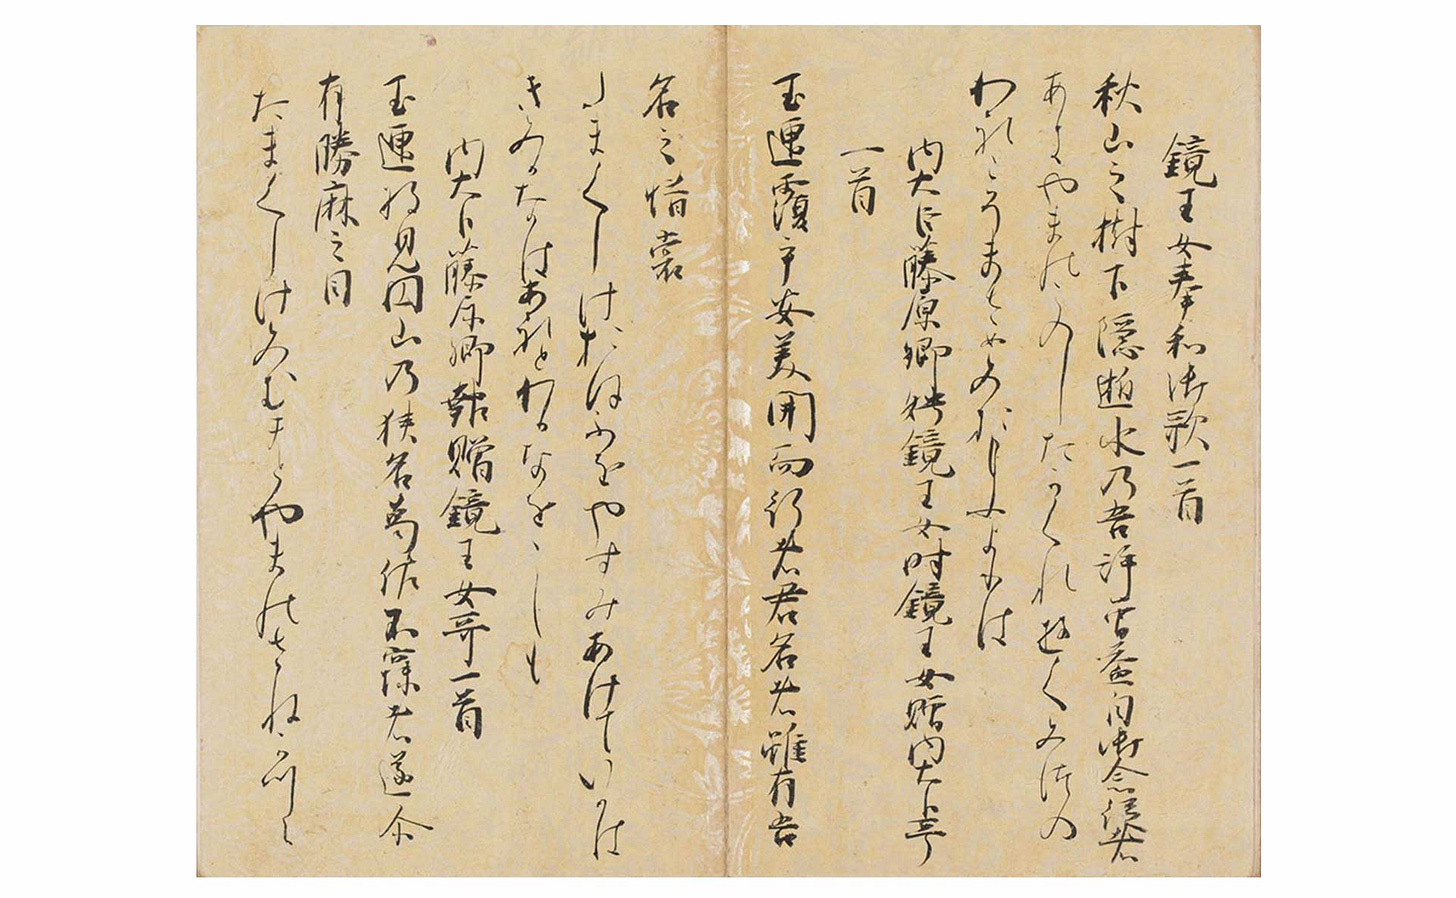 鏡王女奉和御歌一首
秋山之樹下隠逝水乃吾許曽益目御念従者
あきやまのこのしたかくれゆくみつの
われこそまさめみおもひよりは
内大臣藤原卿娉鏡王女時鏡王女贈内大臣哥
一首
玉匣覆乎安美開而行者君名者雖有吾
名之惜裳
たまくしけおほふをやすみあけていかは
きみかなはあれとわかなをしも
内大臣藤原卿報贈鏡王女哥一首
玉匣将見円山乃狭名葛佐不寐者遂尓
有勝麻之目
たまくしけみむまとやまのさねかつら